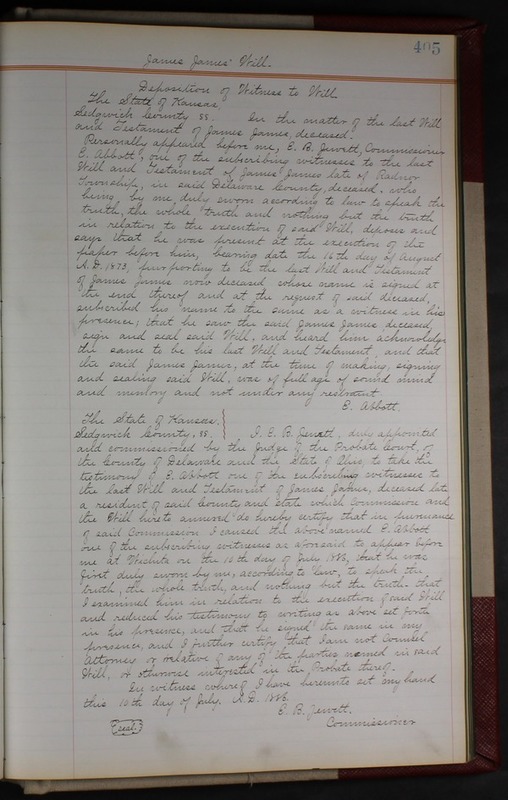 405
James James' Will.
Deposition of Witness to Will.
The State of Kansas,
Sedgwick County ss. In the matter of the last Will
and Testament of James James, deceased.
Personally appeared before me, E. B. Jewett, Commissioner
E. Abbott, one of the subscribing witnesses to the last
Will and Testament of James James late of Radnor
Township, in said Delaware County, deceased, who
being by me duly sworn according to law to speak the
truth, the whole truth and nothing but the truth
in relation to the execution of said Will, deposes and
says that he was present at the execution of the
paper before him, bearing date the 16th day of August
A.D. 1873, purporting to be the last Will and Testament
of James James now deceased whose name is signed at
the end thereof and at the request of said deceased,
subscribed his name to the same as a witness in his
presence; that he saw the said James James, deceased,
sign and seal said Will, and heard him acknowledge
the same to be his last Will and Testament, and that
the said James James, at the time of making, signing
and sealing said Will, was of full age of sound mind
and memory and not under any restraint.
E. Abbott.
The State of Kansas,
Sedgwick County, ss, I, E. B. Jewett, duly appointed
and commissioned by the Judge of the Probate Court, of
the County of Delaware and the State of Ohio, to take the
testimony of E. Abbott one of the subscribing witnesses to
the last Will and Testament of James James, deceased late
a resident of said County and State which Commission and
the Will hereto annexed do hereby certify that in pursuance
of said Commission I caused the above named E. Abbott
one of the subscribing witnesses as aforesaid to appear before
me at Wichita on the 10th day of July 1886, that he was
first duly sworn by me, according to law, to speak the
truth, the whole truth, and nothing but the truth. that
I examined him in relation to the execution of said Will
and reduced his testimony to writing as above set forth
in his presence, and that he signed the same in my
presence, and I further certify that I am not Counsel
Attorney or relative of any of the parties named in said
Will, or otherwise interested in the Probate thereof.
In witness whereof I have hereunto set my hand
this 10th day of July, A.D. 1886.
E. B. Jewett.
Commissioner
seal.